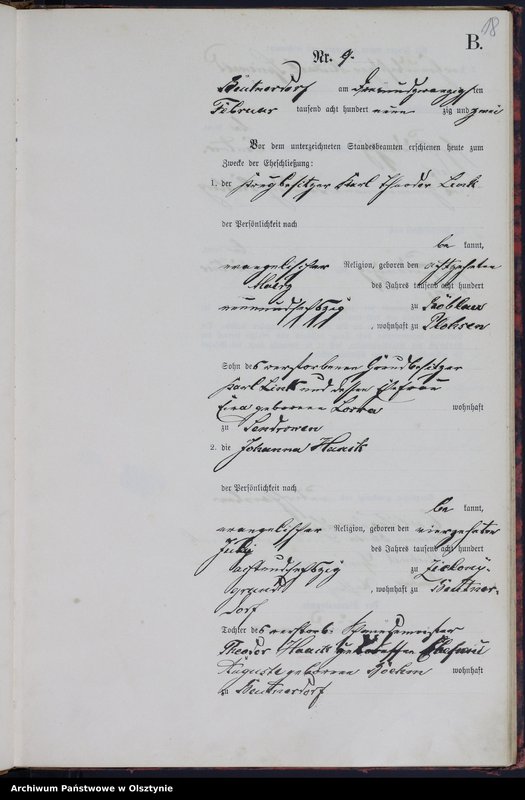 18
B.
Nr. 9.
Beutnerdorf am dreiundzwanzigsten
Februar tausend acht hundert neun zig und zwei
Vor dem unterzeichneten Standesbeamten erschienen heute zum
Zwecke der Eheschließung:
1. der Karl Theodor Link
der Persönlichkeit nach
be kannt,
evangelischer Religion, geboren den achtzehnten
März des Jahres tausend acht hundert
neunundsechszig zu
, wohnhaft zu Plohsen
Sohn des verstorbenen Grundbesitzer
Karl Link und dessen Ehefrau
geborenen wohnhaft
zu Sendrowen
2. die Johanna Hanik
der Persönlichkeit nach
be kannt,
evangelischer Religion, geboren den vierzehnten
July des Jahres tausend acht hundert
achtundsechszig zu
grund , wohnhaft zu Beutner-
dorf
Tochter des verstorb.
Theodor Hanik dessen Ehefrau
Auguste geborenen Böhm wohnhaft
zu Beutnerdorf
Archiwum Państwowe w Olsztynie